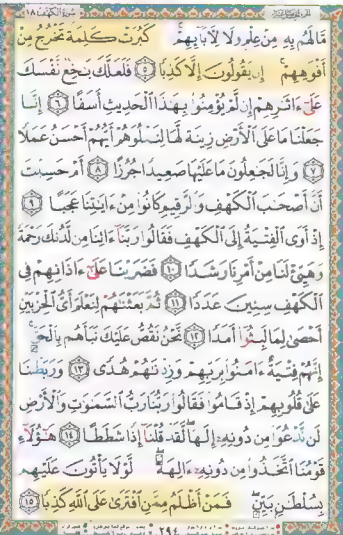 سورة الكهف ١٨
مَّا لَهُم بِهِۦ مِنْ عِلْمٍ وَلَا لِآبَآئِهِمْ ۚ كَبُرَتْ كَلِمَةً تَخْرُجُ مِنْ
أَفْوَٰهِهِمْ ۚ إِن يَقُولُونَ إِلَّا كَذِبًا ۝٥ فَلَعَلَّكَ بَٰخِعٌ نَّفْسَكَ
عَلَىٰٓ ءَاثَٰرِهِمْ إِن لَّمْ يُؤْمِنُوا۟ بِهَٰذَا ٱلْحَدِيثِ أَسَفًا ۝٦ إِنَّا
جَعَلْنَا مَا عَلَى ٱلْأَرْضِ زِينَةً لَّهَا لِنَبْلُوَهُمْ أَيُّهُمْ أَحْسَنُ عَمَلًا
۝٧ وَإِنَّا لَجَٰعِلُونَ مَا عَلَيْهَا صَعِيدًا جُرُزًا ۝٨ أَمْ حَسِبْتَ
أَنَّ أَصْحَٰبَ ٱلْكَهْفِ وَٱلرَّقِيمِ كَانُوا۟ مِنْ ءَايَٰتِنَا عَجَبًا ۝٩
إِذْ أَوَى ٱلْفِتْيَةُ إِلَى ٱلْكَهْفِ فَقَالُوا۟ رَبَّنَآ ءَاتِنَا مِن لَّدُنكَ رَحْمَةً
وَهَيِّئْ لَنَا مِنْ أَمْرِنَا رَشَدًا ۝١٠ فَضَرَبْنَا عَلَىٰٓ ءَاذَانِهِمْ فِى
ٱلْكَهْفِ سِنِينَ عَدَدًا ۝١١ ثُمَّ بَعَثْنَٰهُمْ لِنَعْلَمَ أَىُّ ٱلْحِزْبَيْنِ
أَحْصَىٰ لِمَا لَبِثُوٓا۟ أَمَدًا ۝١٢ نَّحْنُ نَقُصُّ عَلَيْكَ نَبَأَهُم بِٱلْحَقِّ ۚ
إِنَّهُمْ فِتْيَةٌ ءَامَنُوا۟ بِرَبِّهِمْ وَزِدْنَٰهُمْ هُدًى ۝١٣ وَرَبَطْنَا
عَلَىٰ قُلُوبِهِمْ إِذْ قَامُوا۟ فَقَالُوا۟ رَبُّنَا رَبُّ ٱلسَّمَٰوَٰتِ وَٱلْأَرْضِ
لَن نَّدْعُوَا۟ مِن دُونِهِۦٓ إِلَٰهًا ۖ لَّقَدْ قُلْنَآ إِذًا شَطَطًا ۝١٤ هَٰٓؤُلَآءِ
قَوْمُنَا ٱتَّخَذُوا۟ مِن دُونِهِۦٓ ءَالِهَةً ۖ لَّوْلَا يَأْتُونَ عَلَيْهِم
بِسُلْطَٰنٍۭ بَيِّنٍ ۖ فَمَنْ أَظْلَمُ مِمَّنِ ٱفْتَرَىٰ عَلَى ٱللَّهِ كَذِبًا ۝١٥
٢٩٤